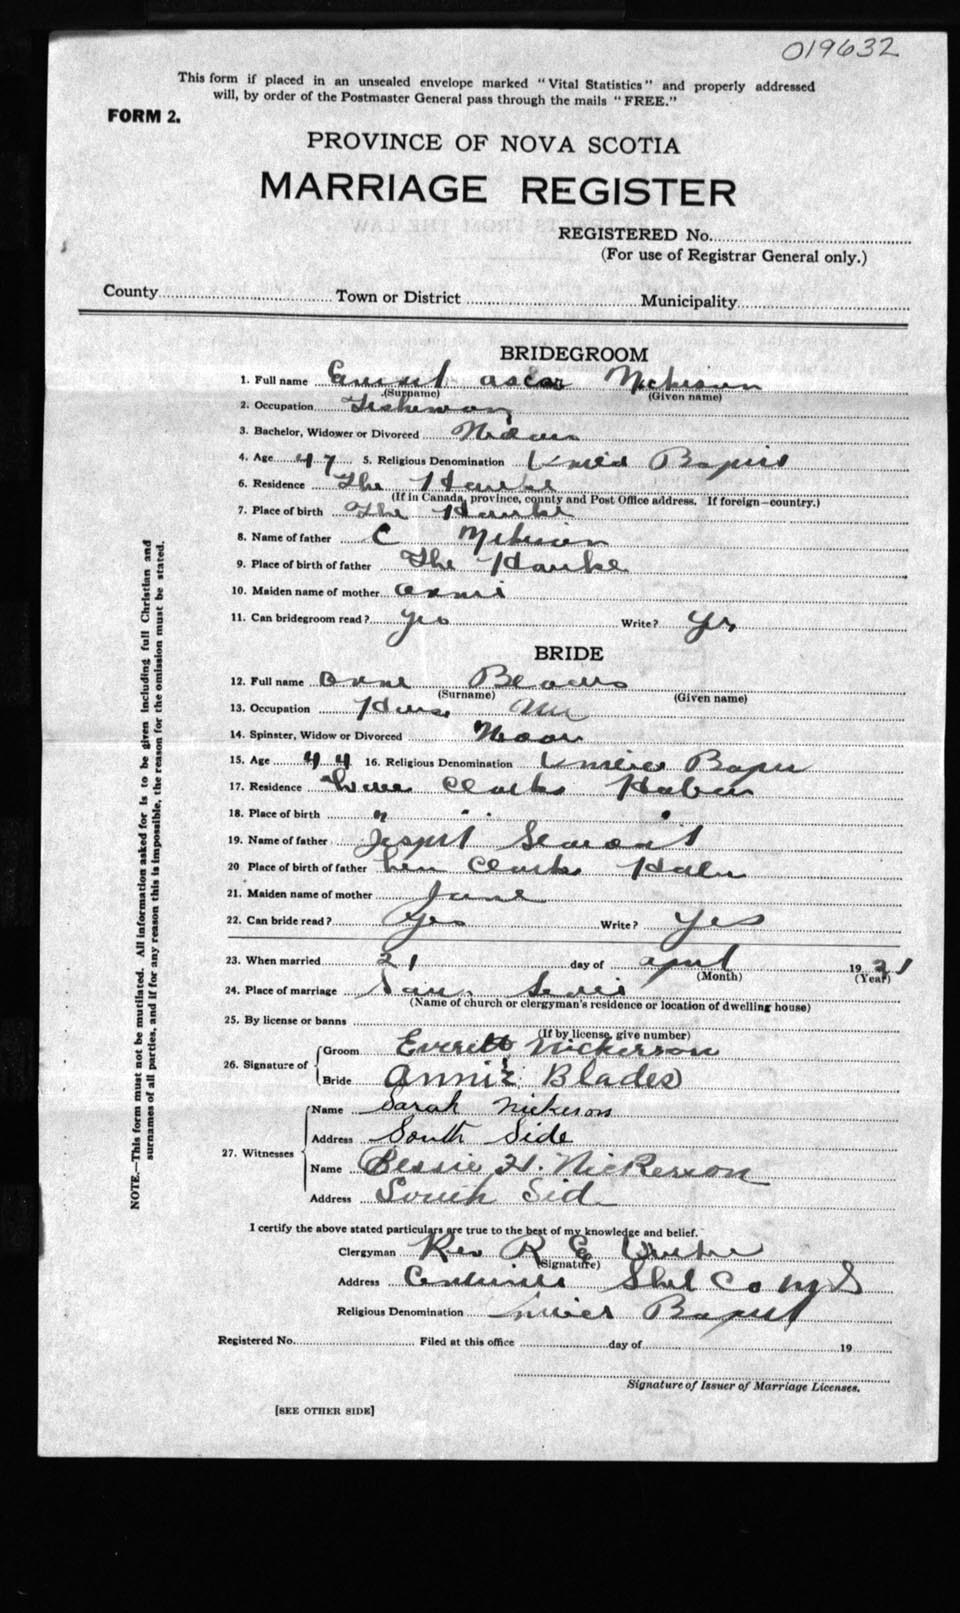 019632
This form if placed in an unsealed envelope marked "Vital Statistics" and properly addressed
will, by order of the Postmaster General pass through the mails "FREE."
FORM 2.
PROVINCE OF NOVA SCOTIA
MARRIAGE REGISTER
REGISTERED No.
(For use of Registrar General only.)
County Town or District Municipality
BRIDEGROOM
1. Full name
(Surname) (Given name)
2. Occupation
3. Bachelor, Widower or Divorced
4. Age 47 5. Religious Denomination
6. Residence The
(If in Canada, province, county and Post Office address. If foreign—country.)
7. Place of birth The
8. Name of father C
9. Place of birth of father The
10. Maiden name of mother
11. Can bridegroom read? yes Write? yes
BRIDE
12. Full name
(Surname) (Given name)
13. Occupation
14. Spinster, Widow or Divorced
15. Age 44 16. Religious Denomination
17. Residence Clarks
18. Place of birth " " "
19. Name of father
20 Place of birth of father Clarks
21. Maiden name of mother Jane
22. Can bride read? Yes Write? Yes
23. When married 21 day of april 1931
(Month) (Year)
24. Place of marriage
(Name of church or clergyman's residence or location of dwelling house)
25. By license or banns
(If by license, give number)
26. Signature of Groom Everett Nickerson
Bride Annie Blades
27. Witnesses Name Sarah Nickerson
Address South Side
Name Bessie H. Nickerson
Address South Sid
I certify the above stated particulars are true to the best of my knowledge and belief.
Clergyman Rev R E
(Signature)
Address Shel Co N S
Religious Denomination
Registered No. Filed at this office day of 19
Signature of Issuer of Marriage Licenses.
[SEE OTHER SIDE]
NOTE.—This form must not be mutilated. All information asked for is to be given including full Christian and
surnames of all parties, and if for any reason this is impossible, the reason for the omission must be stated.